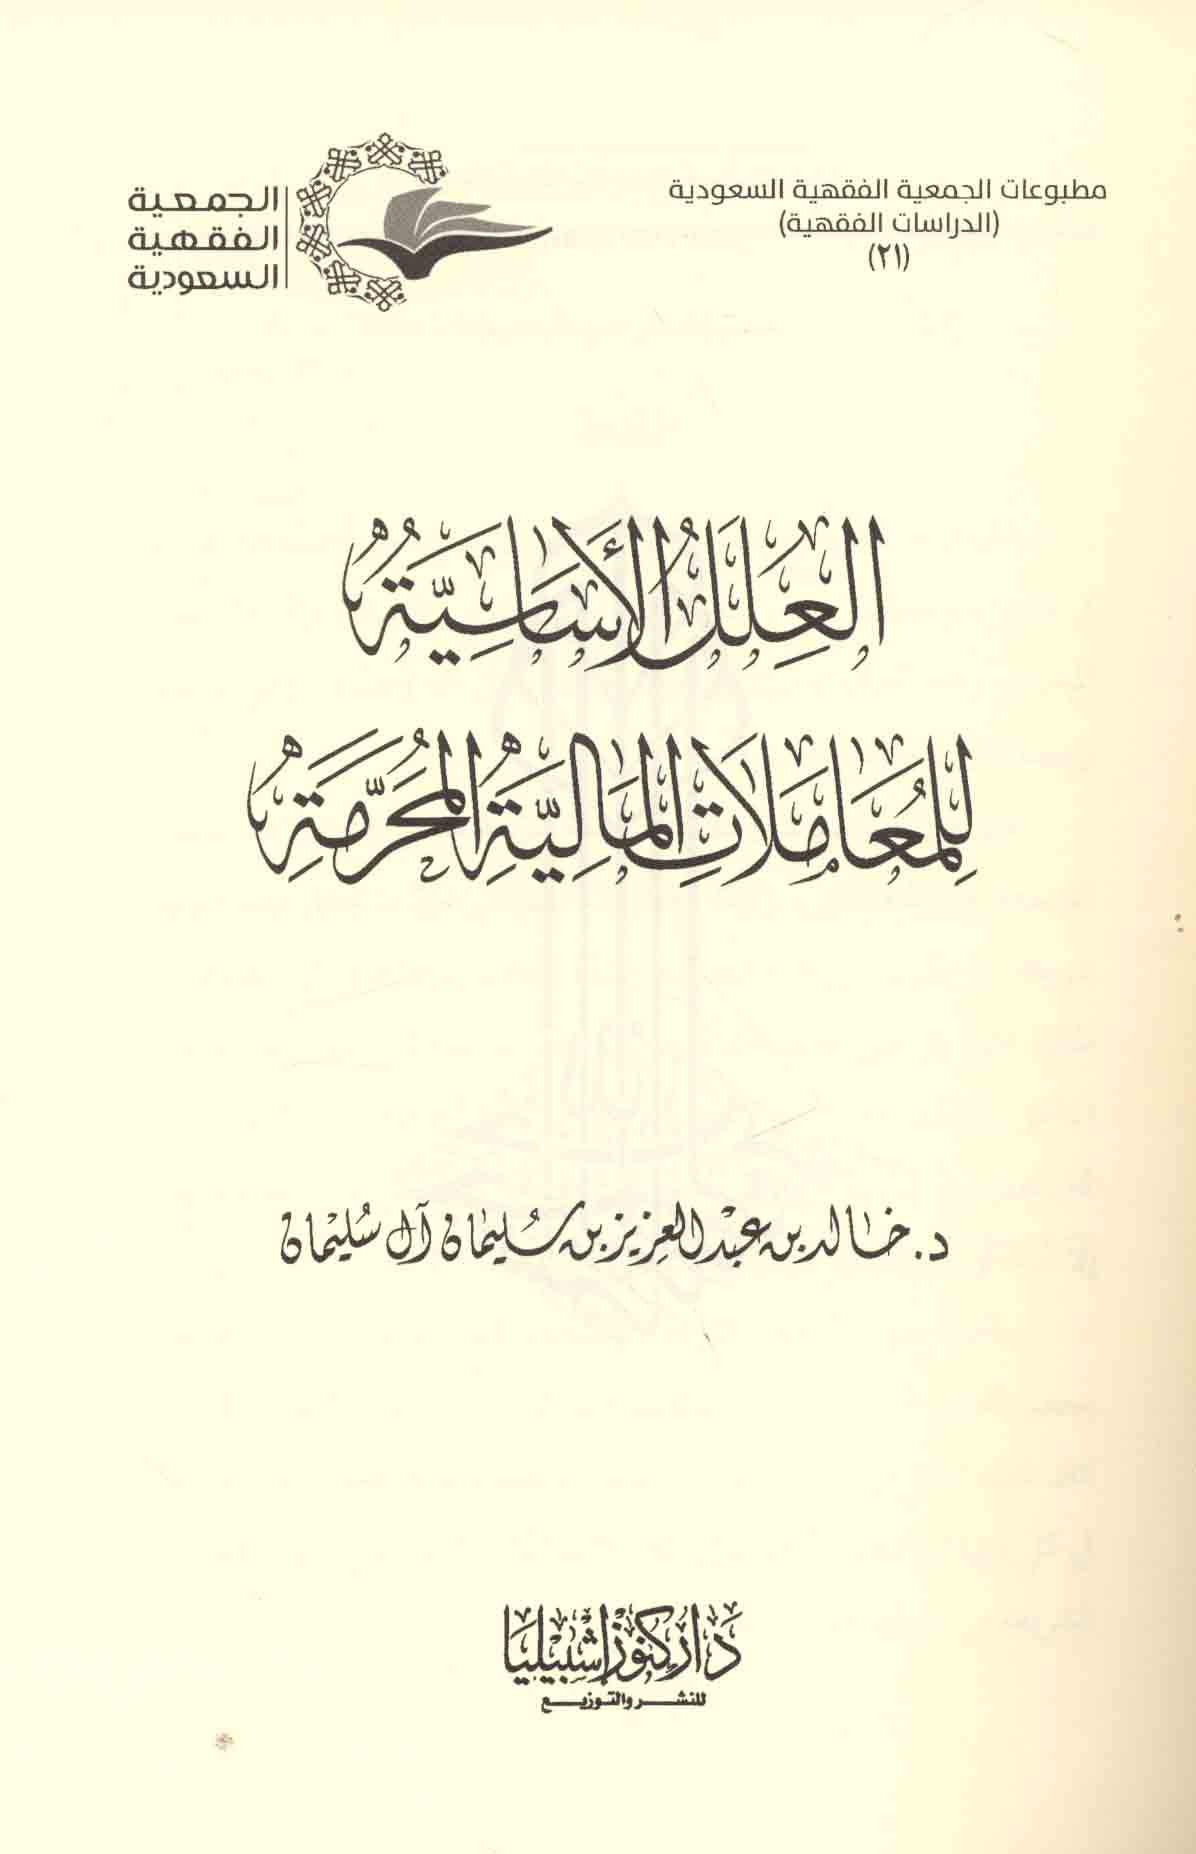 مطبوعات الجمعية الفقهية السعودية
(الدراسات الفقهية)
(٢١)
الجمعية
الفقهية
السعودية
العِلَلُ الأَسَاسِيَّةُ
لِلمُعَامَلَاتِ المَالِيَّةِ المُحَرَّمَةِ
د. خالد بن عبد العزيز بن سليمان آل سليمان
دار كنوز إشبيليا
للنشر والتوزيع